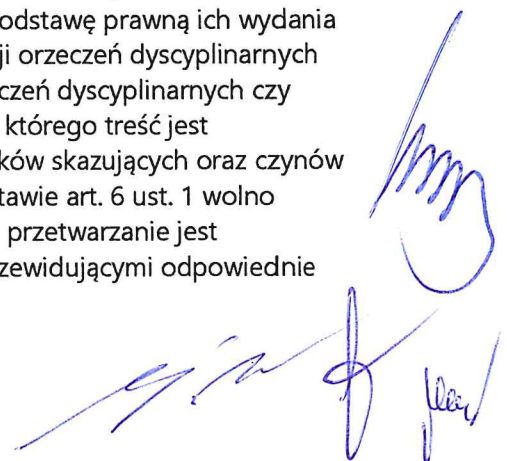 odstawę prawną ich wydania
ji orzeczeń dyscyplinarnych
czeń dyscyplinarnych czy
którego treść jest
ków skazujących oraz czynów
tawie art. 6 ust. 1 wolno
przetwarzanie jest
zewidującymi odpowiednie